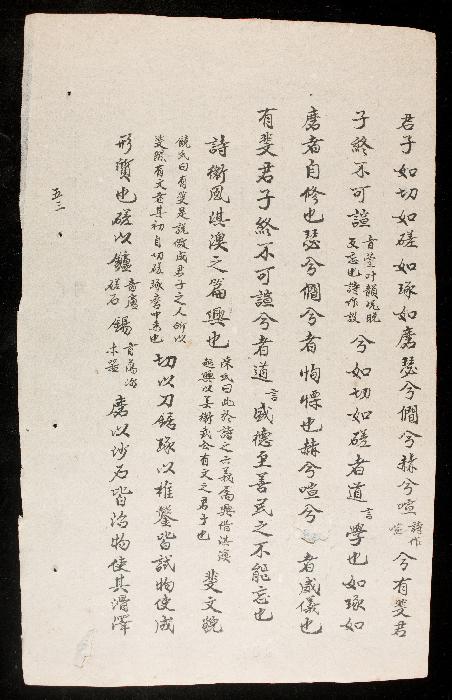 君子如切如磋如琢如磨瑟兮僩兮赫兮喧詩作喧兮有斐君
子終不可諠音萱叶韻況晚反忘也詩作諼兮如切如磋者道言學也如琢如
磨者自修也瑟兮僩兮者恂慄也赫兮喧兮者威儀也
有斐君子終不可諠兮者道言盛德至善民之不能忘也
詩衛風淇澳之篇興也陳氏曰此於詩之六義屬興借淇澳起興以美衛武公有文之君子也斐文貌
饒氏曰有斐是說做成君子之人所以斐然有文者其初自切磋琢磨中來也切以刀鋸琢以椎鑿皆試物使成
形質也磋以鑢音慮磋石鍚磨以沙石皆治物使其滑澤
五三